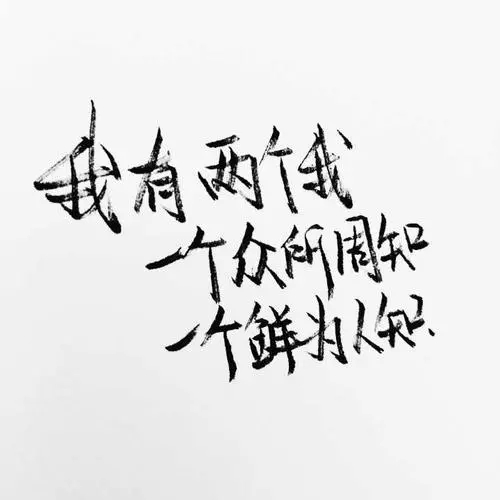 我有两个我
一个众所周知
一个鲜为人知